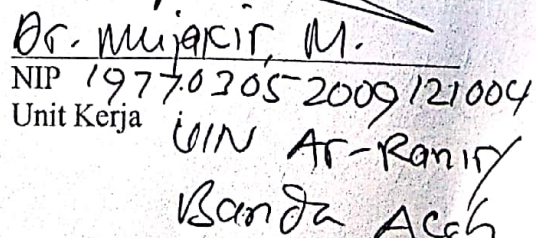 Dr. Mujakir, M.
NIP 19770305 2009 121004
Unit Kerja UIN Ar-Raniry
Banda Aceh